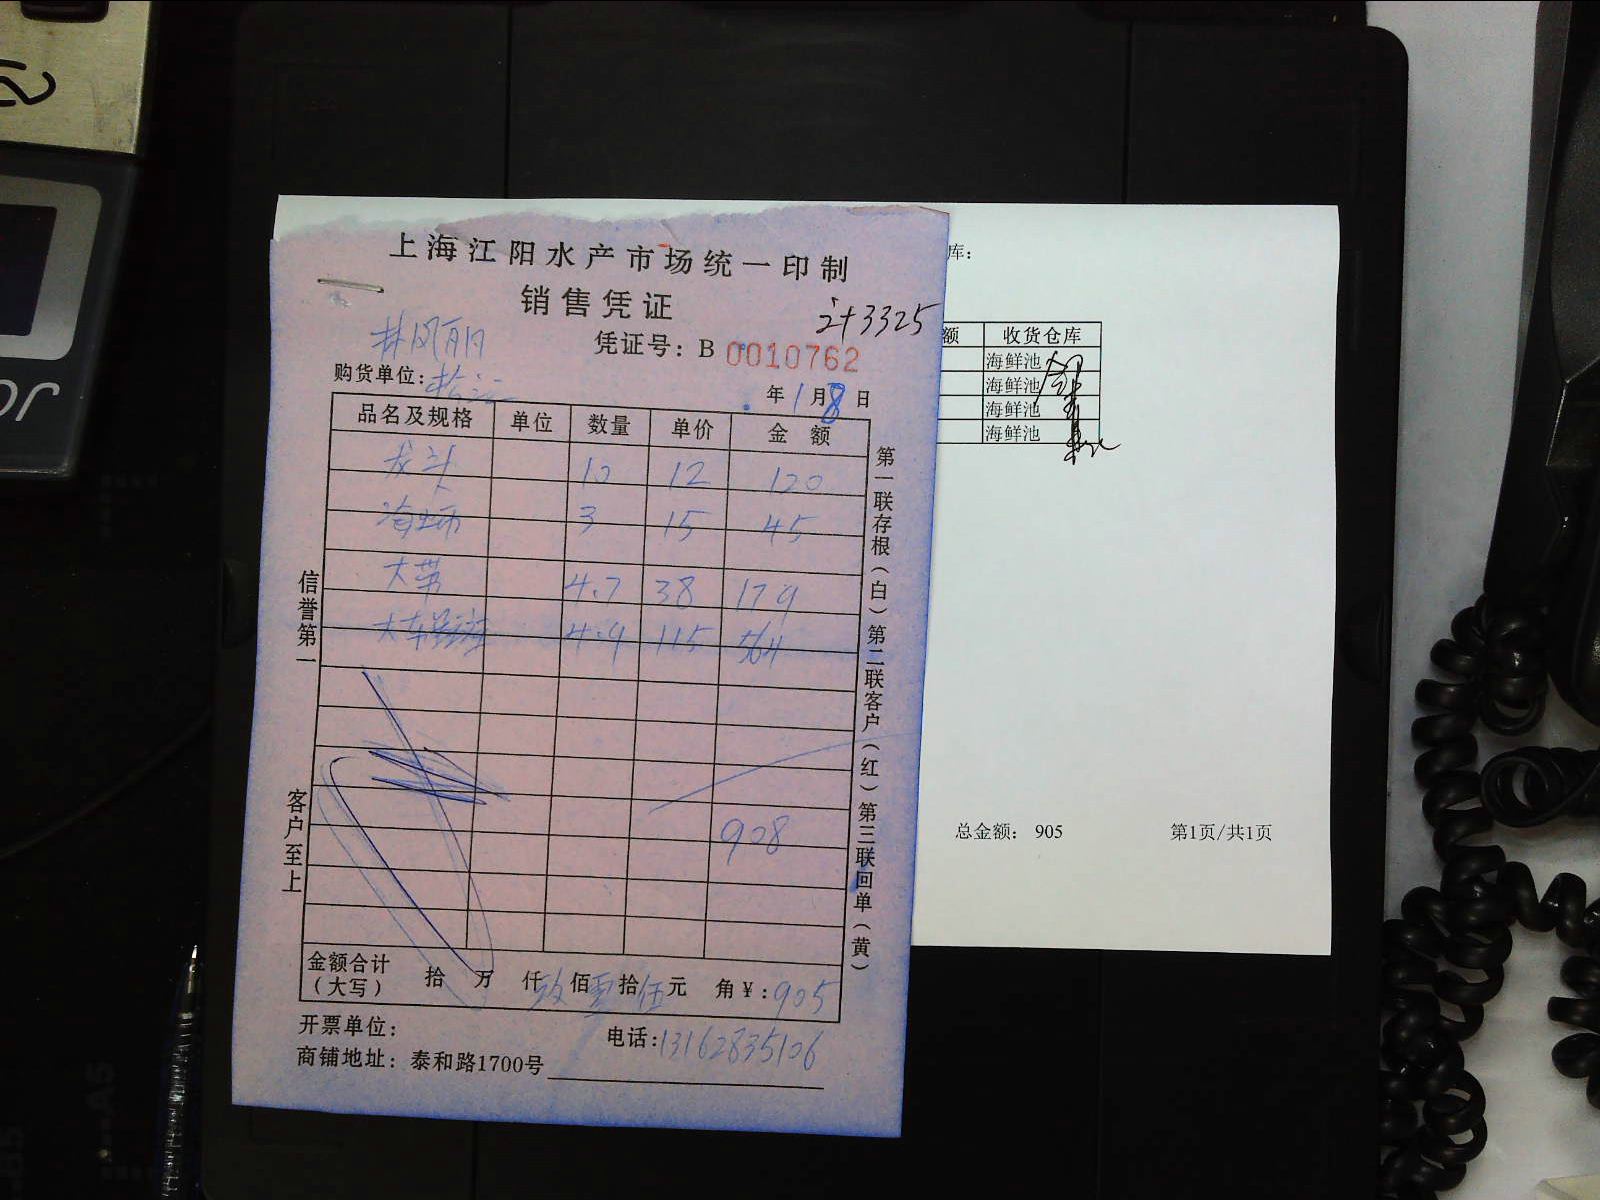 上海江阳水产市场统一印制
销售凭证
计3325
凭证号：B 0010762
购货单位：
年1月8日
品名及规格 单位 数量 单价 金额
龙头 10 12 120
3 15 45
大带 4.7 38 179
4.9 115 564
908
金额合计（大写） 拾 万 仟 玖佰零拾伍元 角￥：905
开票单位：
电话：13162835106
商铺地址：泰和路1700号
信誉第一
客户至上
第一联存根（白）第二联客户（红）第三联回单（黄）
库：
额 收货仓库
海鲜池
海鲜池
海鲜池
海鲜池
总金额： 905
第1页/共1页
A5